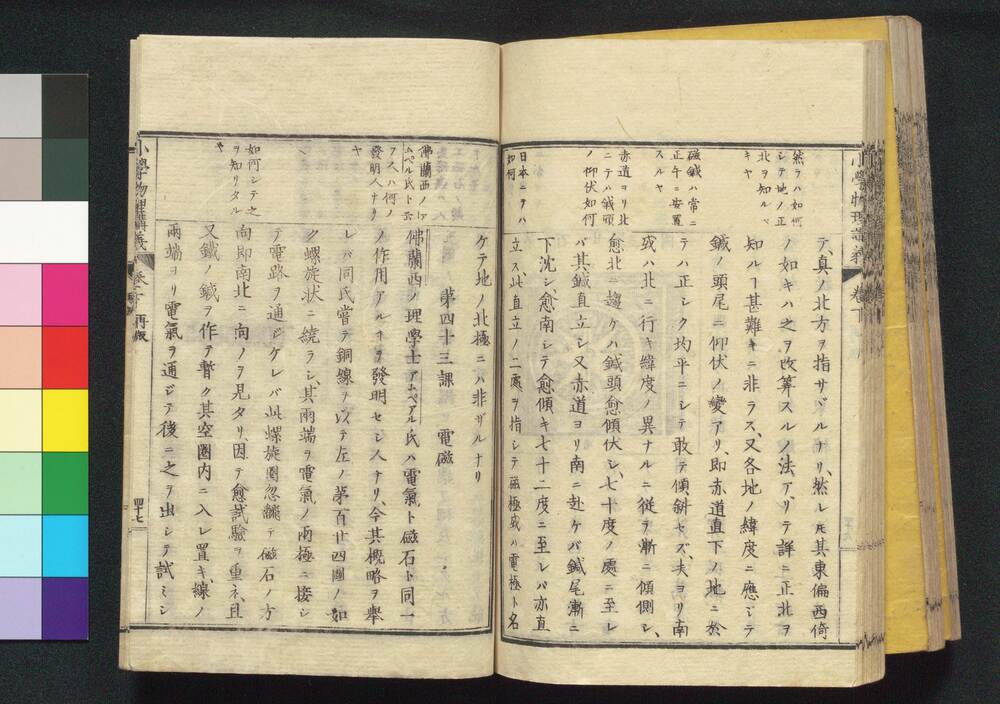 然ラハ如何
シテ地ノ正
北ヲ知ルベ
キヤ
磁鍼ハ常ニ
正午ニ安置
スルヤ
赤道ヨリ北
ニテハ鍼頭
ノ仰伏如何
日本ニテハ
如何
テ、真ノ北方ヲ指サヾルナリ、然レ𪜈其東偏西倚
ノ如キハ之ヲ改算スルノ法アリテ詳ニ正北ヲ
知ルヿ甚難キニ非ラス、又各地ノ緯度ニ應ジテ
鍼ノ頭尾ニ仰伏ノ變アリ、即赤道直下ノ地ニ於
テハ正シク均平ニシテ敢テ傾斜セズ、夫ヨリ南
或ハ北ニ行キ緯度ノ異ナルニ從ヲ漸ニ傾側シ、
愈北ニ趨ケハ鍼頭愈傾伏シ、七十度ノ處ニ至レ
バ其鍼直立シ又赤道ヨリ南ニ赴ケバ鍼尾漸ニ
下沈シ、愈南シテ愈傾キ七十二度ニ至レバ亦直
立ス、此直立ノ二處ヲ指シテ磁極或ハ電極ト名
佛蘭西ノ
ムペル氏ト云
ヲ人ハ何ノ
發明人ナリ
ヤ
如何シテ之
ヲ知リタル
ヤ
ケテ地ノ北極ニハ非ザルナリ
第四十三課 電磁
佛蘭西ノ理學士アムペアル氏ハ電氣ト磁石ト同一
ノ作用アルヿヲ發明セシ人ナリ、今其概略ヲ舉
レバ同氏嘗テ銅線ヲ以テ左ノ第百廿四圖ノ如
ク螺旋状ニ繞ラシ、其兩端ヲ電氣ノ兩極ニ接シ
テ電路ヲ通ジケレバ此螺旋圈忽飜テ磁石ノ方
向即南北ニ向ノヲ見タリ、因テ愈試驗ヲ重ネ、且
又鐵ノ鍼ヲ作テ暫ク其空圏内ニ入レ置キ、線ノ
兩端ヨリ電氣ヲ通ジテ後ニ之ヲ出シテ試ミシ
小學物理講義 卷下 再版
四十七